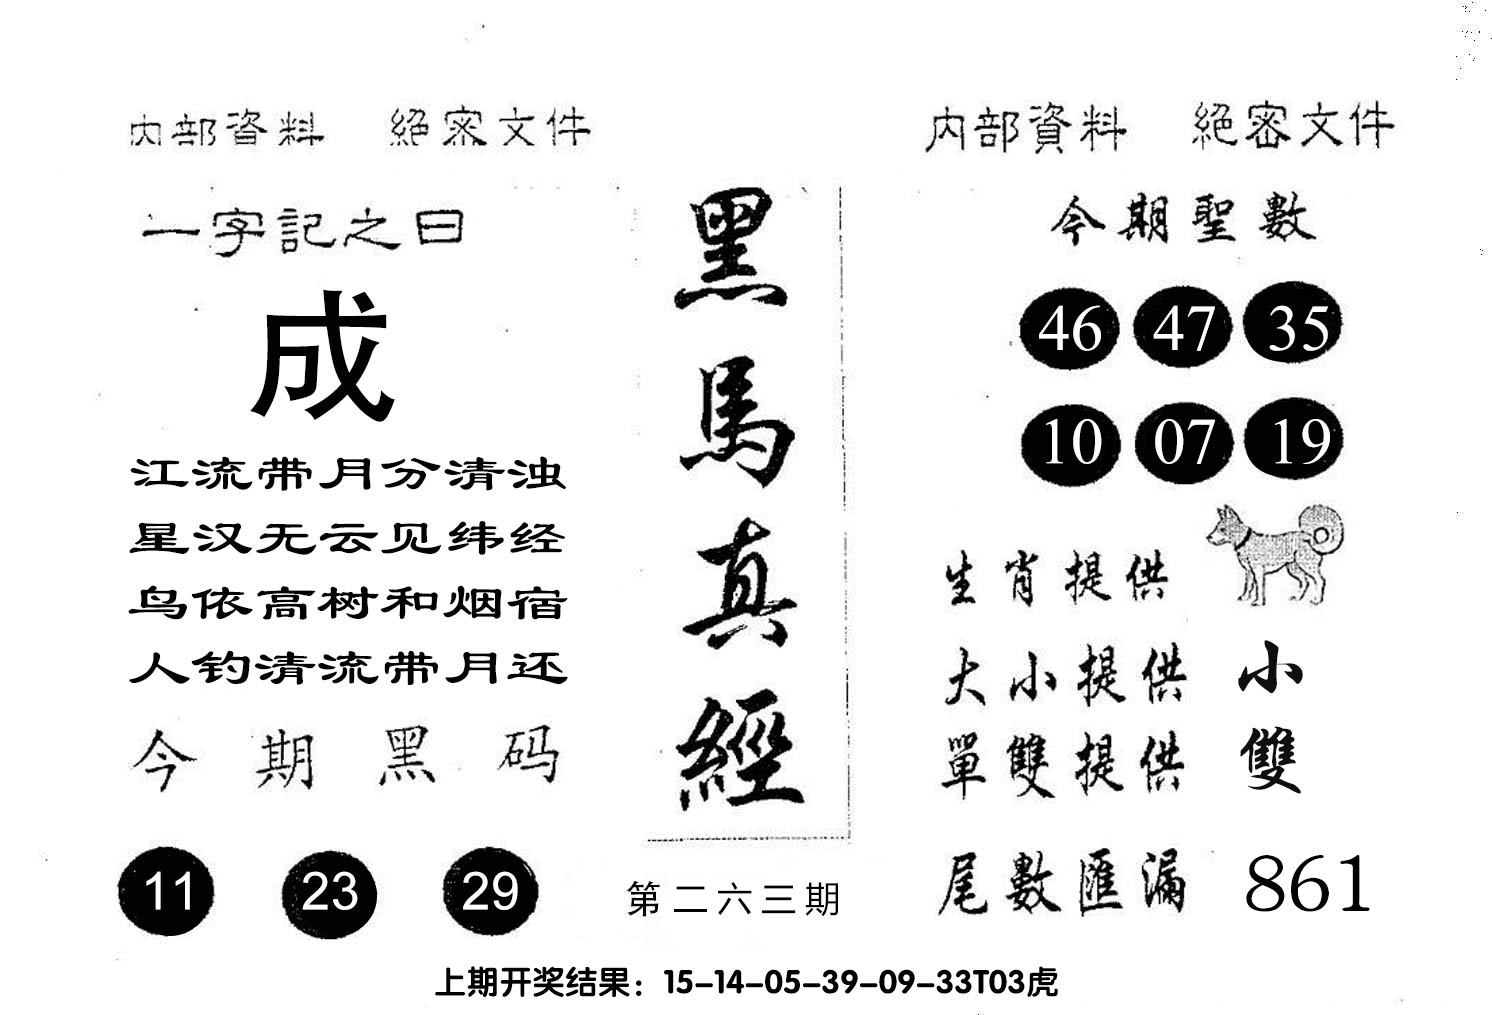 内部資料 絕密文件
一字記之曰
成
江流带月分清浊
星汉无云见纬经
鸟依高树和烟宿
人钓清流带月还
今期黑码
11 23 29
黑馬真經
第二六三期
内部資料 絕密文件
今期聖數
46 47 35
10 07 19
生肖提供
大小提供 小
單雙提供 雙
尾數匯漏 861
上期开奖结果：15-14-05-39-09-33T03虎